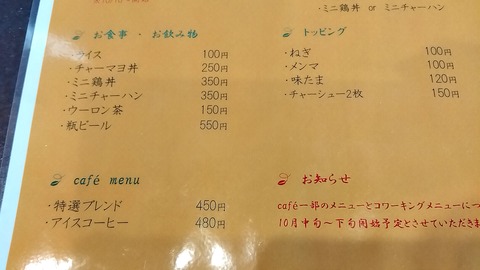 ・ミニ鶏丼 or ミニチャーハン
お食事 ・ お飲み物
・ライス 100円
・チャーマヨ丼 250円
・ミニ鶏丼 350円
・ミニチャーハン 350円
・ウーロン茶 150円
・瓶ビール 550円
トッピング
・ねぎ 100円
・メンマ 100円
・味たま 120円
・チャーシュー2枚 150円
café menu
・特選ブレンド 450円
・アイスコーヒー 480円
お知らせ
café一部のメニューとコワーキングメニューにつ
10月中旬～下旬開始予定とさせていただきま